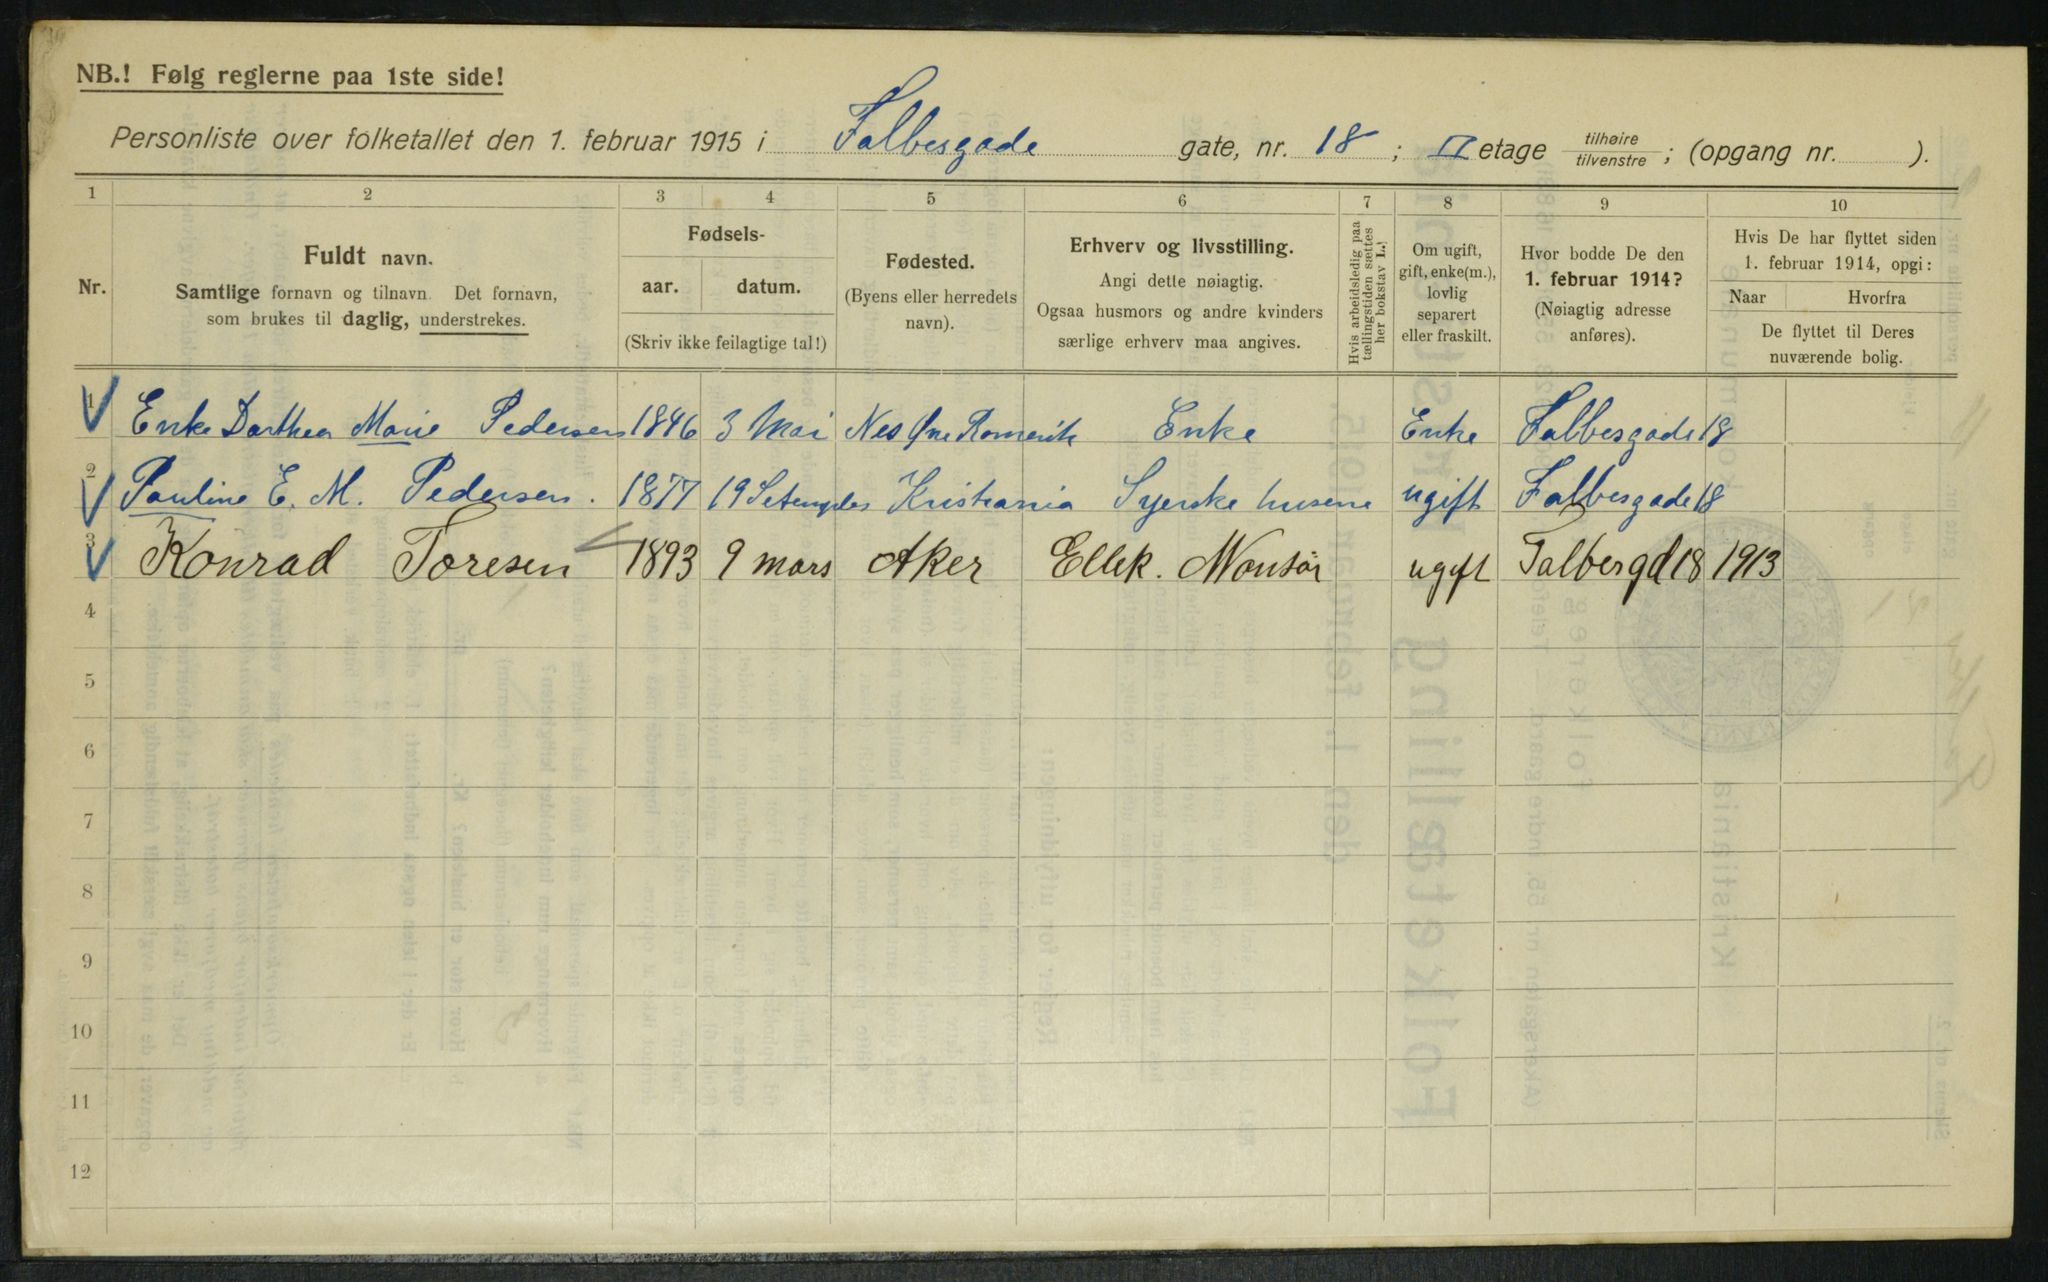 NB.! Følg reglerne paa 1ste side!
Personliste over folketallet den 1. februar 1915 i Falbesgade gate, nr. 18 ; II etage tilhøire/tilvenstre ; (opgang nr. ).
1 2 3 4 5 6 7 8 9 10
Nr.
Fuldt navn.
Samtlige fornavn og tilnavn. Det fornavn,
som brukes til daglig, understrekes.
Fødsels-
aar. datum.
(Skriv ikke feilagtige tal!)
Fødested.
(Byens eller herredets
navn).
Erhverv og livsstilling.
Angi dette nøiagtig.
Ogsaa husmors og andre kvinders
særlige erhverv maa angives.
Hvis arbeidsledig paa
tællingstiden sættes
her bokstav L.!
Om ugift,
gift, enke(m.),
lovlig
separert
eller fraskilt.
Hvor bodde De den
1. februar 1914?
(Nøiagtig adresse
anføres).
Hvis De har flyttet siden
1. februar 1914, opgi:
Naar Hvorfra
De flyttet til Deres
nuværende bolig.
1 Enke Dorthea Marie Pedersen 1846 3 Mai Nes Øvre Romerik Enke Enke Falbesgade 18
2 Pauline E. M. Pedersen. 1877 19 Kristiania Syerske ugift Falbesgade 18
3 Konrad Toresen 1893 9 mars Aker Ellek. Montør ugift Falbergd 18 1913
4
5
6
7
8
9
10
11
12